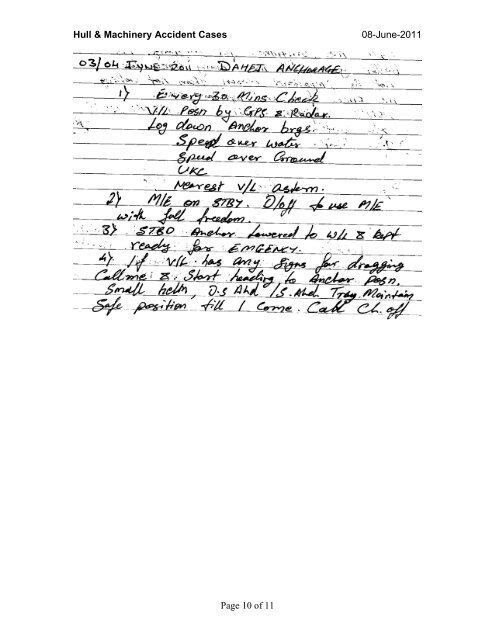 Hull & Machinery Accident Cases 08-June-2011
03/04 JUNE 2011 DAHEJ ANCHORAGE
1) Every 30 Mins Check
V/L Posn by GPS & Radar.
Log down Anchor brgs.
Speed over water
Speed over Ground
UKC
Nearest V/L astern.
2) M/E on STBY. D/off to use M/E
with full freedom.
3) STBD Anchor Lowered to W/L & kept
ready for EMGENCY.
4) If V/L has any signs for dragging
Call me & Start heading to Anchor Posn.
Small helm, D.S Ahd / S.Ahd. Try Maintain
Safe position till I come. Call Ch. off
Page 10 of 11